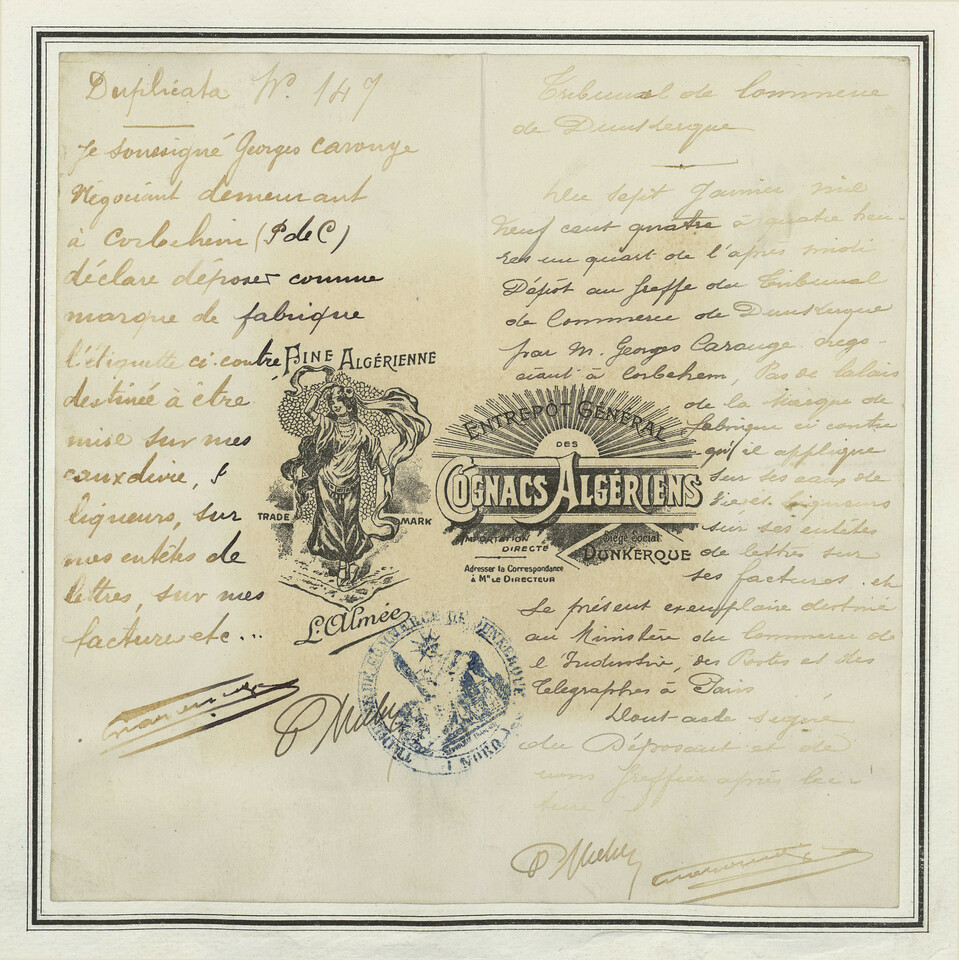 Duplicata N°. 147
Je soussigné Georges Carouge
Négociant demeurant
à Corbehem (P de C)
déclare déposer comme
marque de fabrique
l'étiquette ci contre
destinée à être
mise sur mes
eaux divie,
liqueurs, sur
mes entêtes de
lettres, sur mes
facture etc...
FINE ALGÉRIENNE
TRADE MARK
L'Almée
ENTREPOT GÉNÉRAL
DES
COGNACS ALGÉRIENS
IMPORTATION
DIRECTE
Siège social
DUNKERQUE
Adresser la Correspondance
à Mr LE DIRECTEUR
TRIBUNAL DE COMMERCE DE DUNKERQUE
(NORD)
Tribunal de Commerce
de Dunkerque
Du sept Janvier mil
neuf cent quatre à quatre heu-
res un quart de l'après midi
Dépôt au Greffe du Tribunal
de Commerce de Dunkerque
par M. Georges Carouge négo-
ciant à Corbehem Pas de Calais
de la Marque de
fabrique ci contre
qu'il applique
sur ses eaux de
vie et Liqueurs
sur ses entêtes
de lettres sur
ses factures. et
Le présent exemplaire destiné
au Ministère du Commerce de
l'Industrie, des Postes et des
Télégraphes à Paris
Dont acte signé
du Déposant et de
nous Greffier après lec-
ture